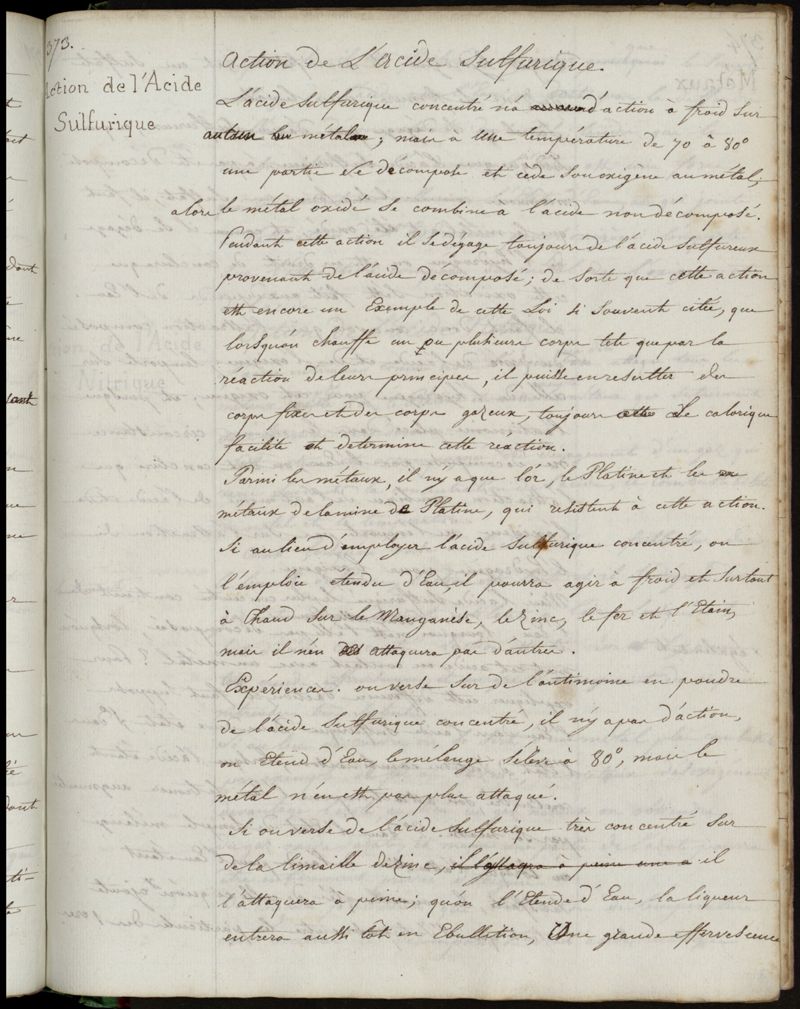 373.
Action de l'Acide
Sulfurique
Action de L'acide Sulfurique.
L'acide Sulfurique concentré n'a d'action à froid Sur
aucun métal ; mais à Une température de 70 à 80°
une partie Se décompose et cède Son oxigène au métal;
alors le métal oxidé Se combine à l'acide non décomposé.
Pendant cette action il Se dégage toujours de l'acide Sulfureux
provenant de l'acide decomposé ; de Sorte que cette action
est encore un Exemple de cette Loi Si Souvent citée, que
lorsqu'on chauffe un ou plusieurs corps tels que par la
réaction de leurs principes, il puisse en resulter des
corps fixes et des corps gazeux, toujours Le calorique
facilite et determine cette réaction.
Parmi les métaux, il n'y a que l'or, le Platine et les
métaux de la mine de Platine, qui resistent à cette action.
Si au lieu d'employer l'acide Sulfurique concentré, on
l'emploie étendu d'Eau, il pourra agir à froid et Surtout
à Chaud Sur le Manganèse, le zinc, le fer et l'Etain,
mais il n'en attaquera pas d'autres.
Expériences. on verse Sur de l'antimoine en poudre
de l'acide Sulfurique concentré, il n'y a pas d'action,
on Etend d'Eau, le mélange S'élève à 80°, mais le
métal n'en est pas plus attaqué.
Si on verse de l'acide Sulfurique très concentré Sur
de la limaille de zinc, il l'attaqra à peine une a il
l'attaquera à peine ; qu'on l'Etende d'Eau, la liqueur
entrera aussi tôt en Ebullition, Une grande effervescence